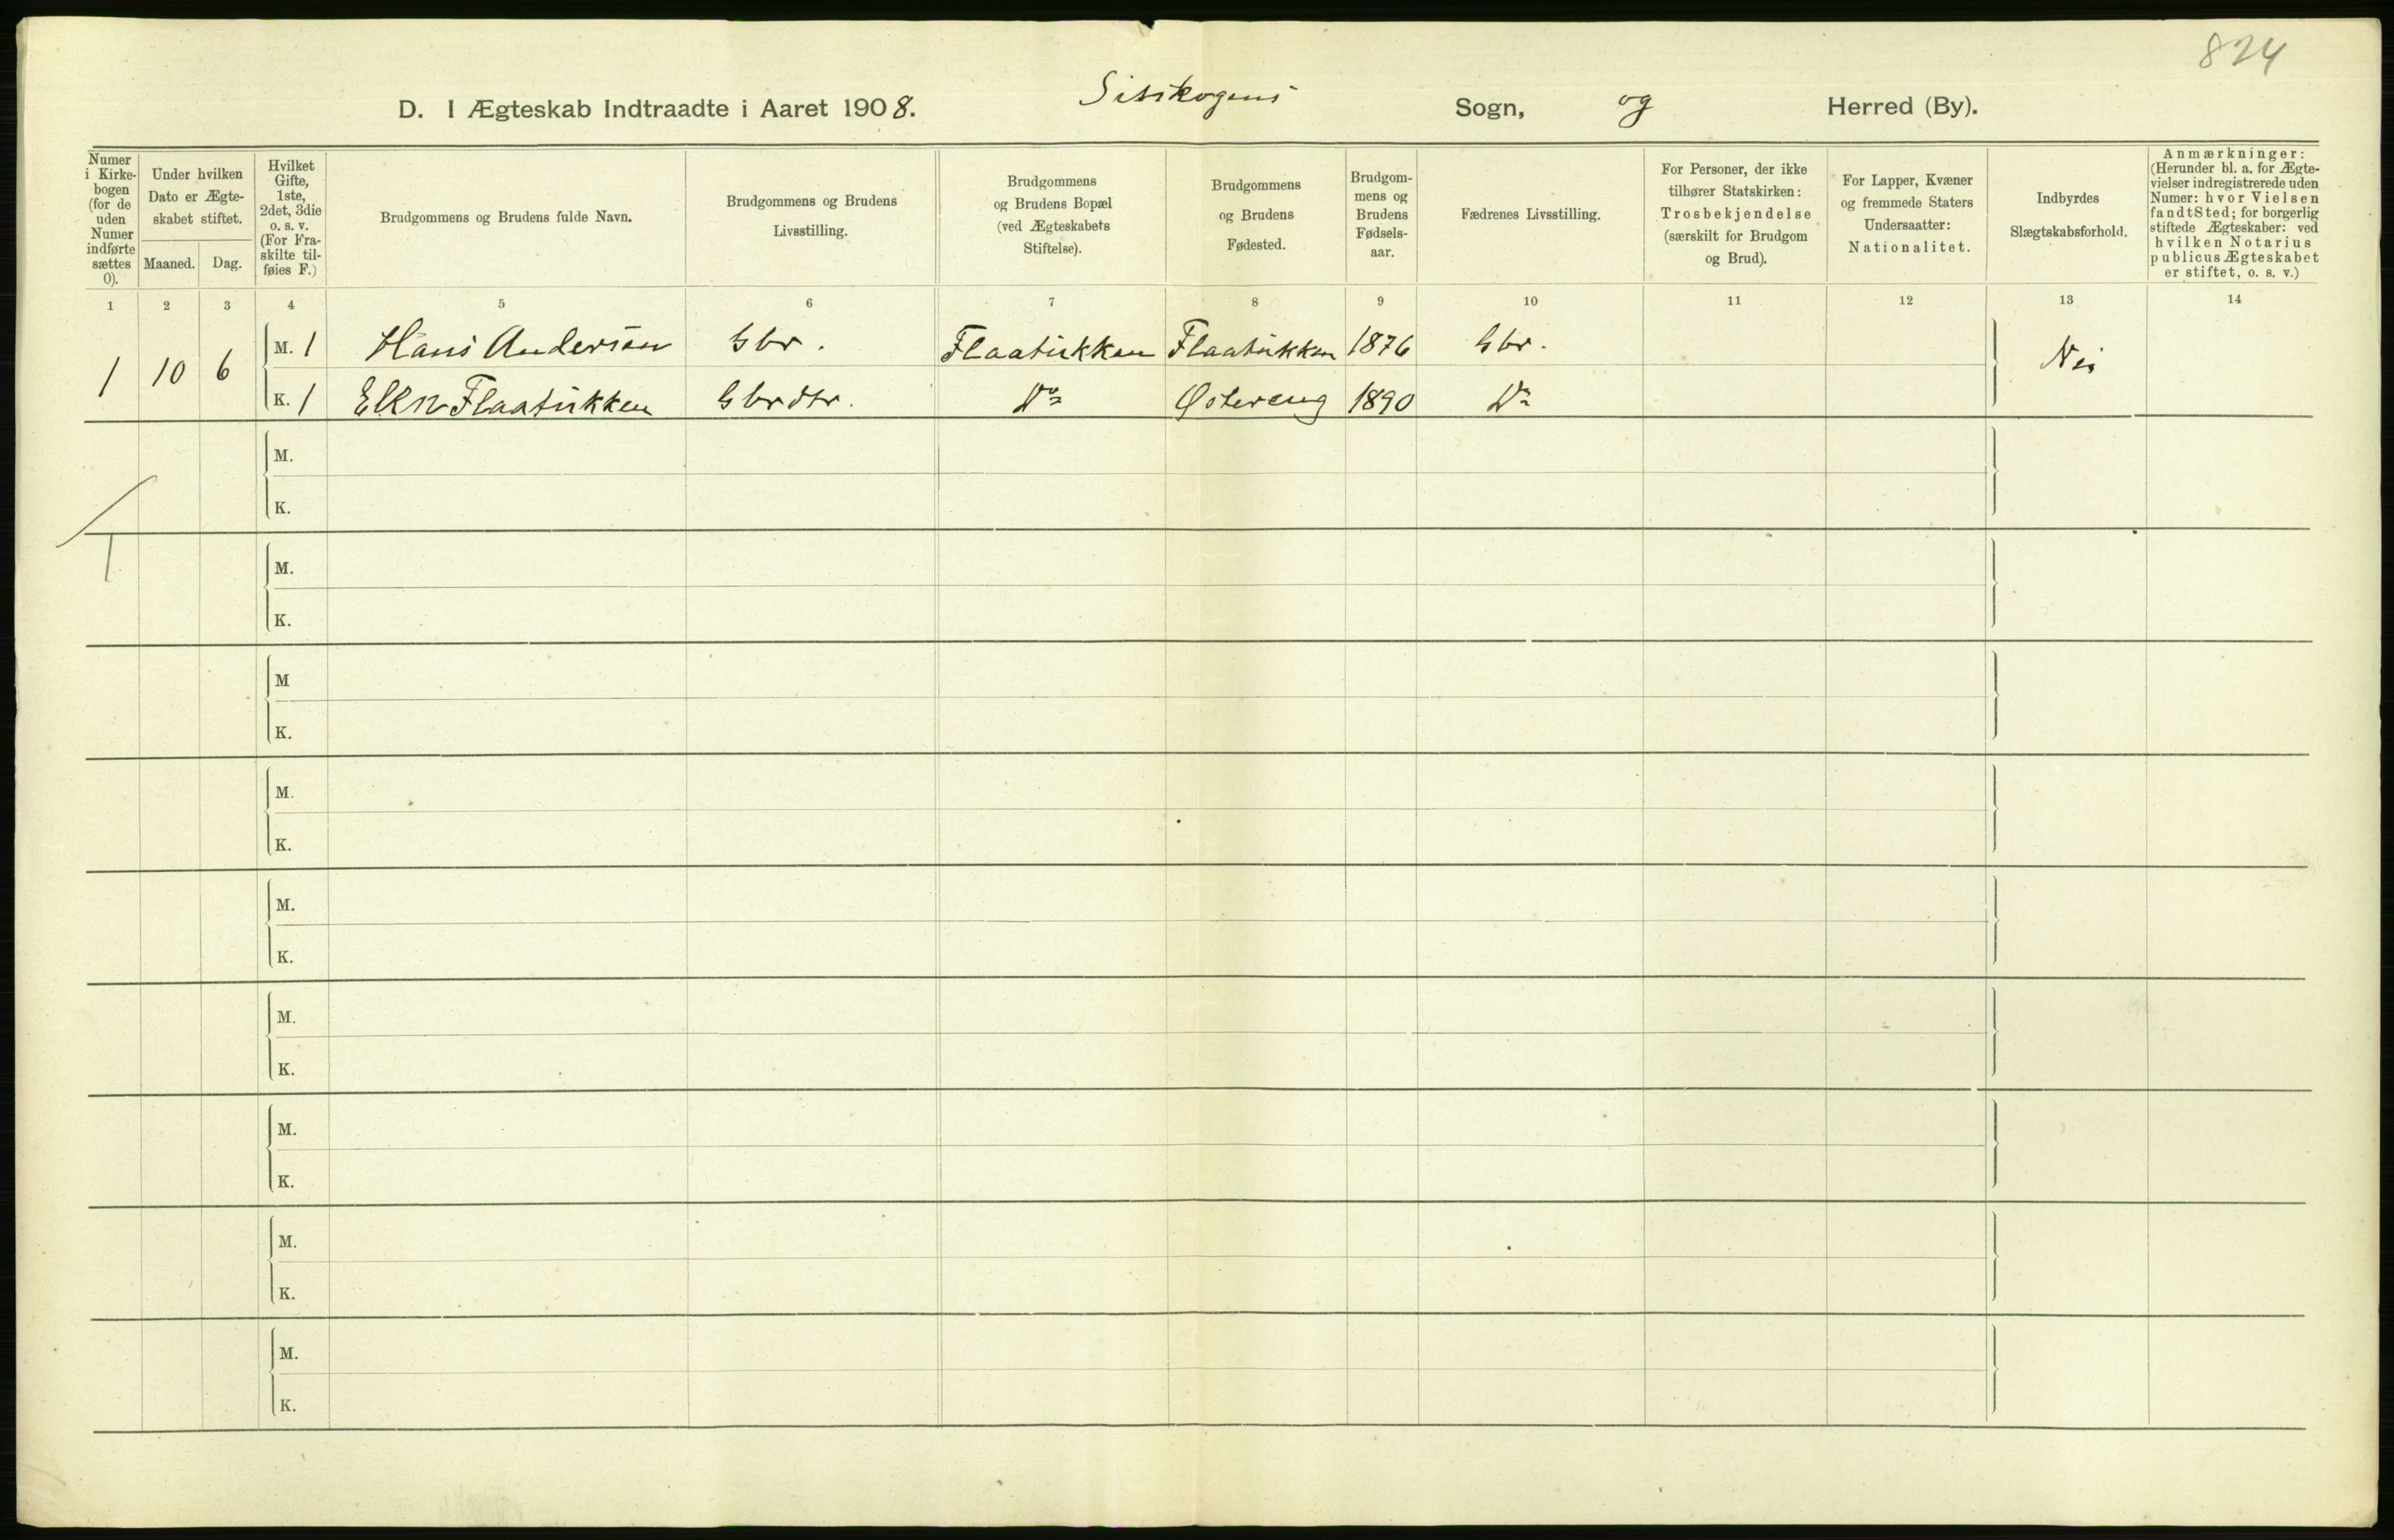 824
D. I Ægteskab Indtraadte i Aaret 1908. Sitskogens Sogn, og Herred (By).
Numer i Kirke-bogen (for de uden Numer indførte sættes 0).
Under hvilken Dato er Ægte-skabet stiftet.
Maaned. Dag.
Hvilket Gifte, 1ste, 2det, 3die o. s. v. (For Fra-skilte til-føies F.)
Brudgommens og Brudens fulde Navn.
Brudgommens og Brudens Livsstilling.
Brudgommens og Brudens Bopæl (ved Ægteskabets Stiftelse).
Brudgommens og Brudens Fødested.
Brudgom-mens og Brudens Fødsels-aar.
Fædrenes Livsstilling.
For Personer, der ikke tilhører Statskirken: Trosbekjendelse (særskilt for Brudgom og Brud).
For Lapper, Kvæner og fremmede Staters Undersaatter: Nationalitet.
Indbyrdes Slægtskabsforhold.
Anmærkninger: (Herunder bl. a. for Ægte-vielser indregistrerede uden Numer: hvor Vielsen fandt Sted; for borgerlig stiftede Ægteskaber: ved hvilken Notarius publicus Ægteskabet er stiftet, o. s. v.)
1 2 3 4 5 6 7 8 9 10 11 12 13 14
1 10 6 M. 1 Hans Andersen Gbr. Flaatukken Flaatukken 1876 Gbr. Nei
K. 1 Flaatukken Gbrdtr. Do Østereng 1890 Do
M.
K.
1
M.
K.
M
K.
M.
K.
M.
K.
M.
K.
M.
K.
M.
K.
M.
K.